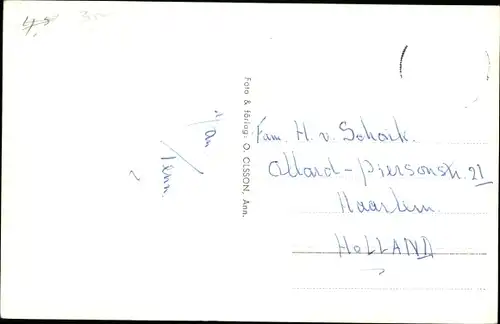 Foto & förlag: O. OLSSON, Ann.
Fam. H. v. Schaik.
Allard-Piersonstr. 21
Haarlem.
HOLLAND